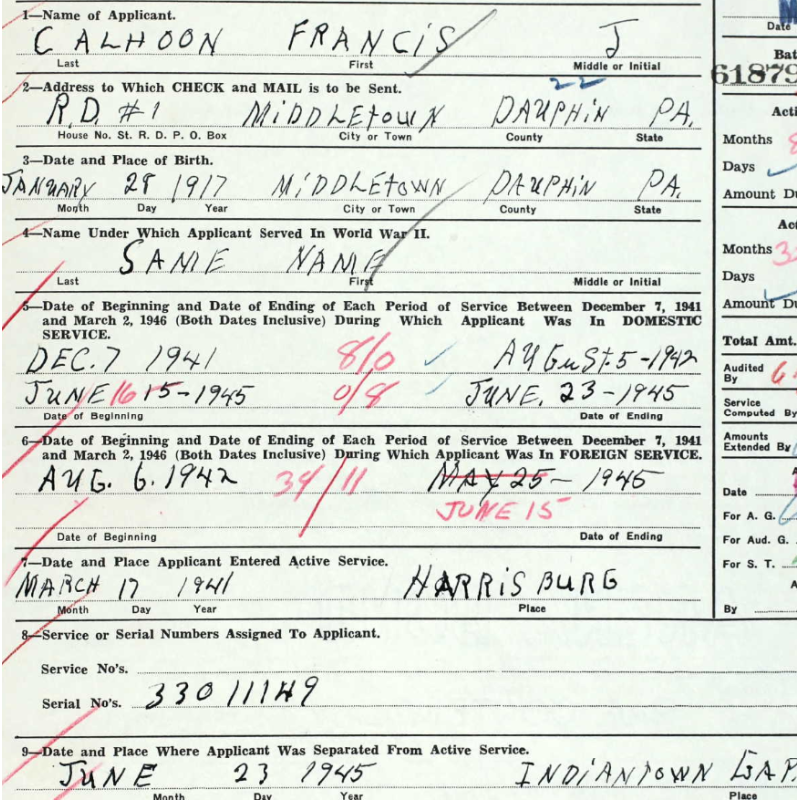 1—Name of Applicant.
CALHOON FRANCIS J
Last First Middle or Initial
2—Address to Which CHECK and MAIL is to be Sent.
22
R.D. #1 MIDDLETOWN DAUPHIN PA.
House No. St. R. D. P. O. Box City or Town County State
3—Date and Place of Birth.
JANUARY 28 1917 MIDDLETOWN DAUPHIN PA.
Month Day Year City or Town County State
4—Name Under Which Applicant Served In World War II.
SAME NAME
Last First Middle or Initial
5—Date of Beginning and Date of Ending of Each Period of Service Between December 7, 1941
and March 2, 1946 (Both Dates Inclusive) During Which Applicant Was In DOMESTIC
SERVICE.
DEC. 7 1941 8/0 AUGUST. 5-1942
JUNE 16 15-1945 0/8 JUNE. 23-1945
Date of Beginning Date of Ending
6—Date of Beginning and Date of Ending of Each Period of Service Between December 7, 1941
and March 2, 1946 (Both Dates Inclusive) During Which Applicant Was In FOREIGN SERVICE.
AUG. 6. 1942 34/11 MAY 25- 1945
JUNE 15
Date of Beginning Date of Ending
7—Date and Place Applicant Entered Active Service.
MARCH 17 1941 HARRISBURG
Month Day Year Place
8—Service or Serial Numbers Assigned To Applicant.
Service No's.
Serial No's. 33011149
9—Date and Place Where Applicant Was Separated From Active Service.
JUNE 23 1945 INDIANTOWN GAP.
Month Day Year Place
Date
Bat
61879
Acti
Months 8
Days
Amount Du
Act
Months 3
Days
Amount Du
Total Amt.
Audited
By
Service
Computed By
Amounts
Extended By
Date
For A. G.
For Aud. G.
For S. T.
A
By